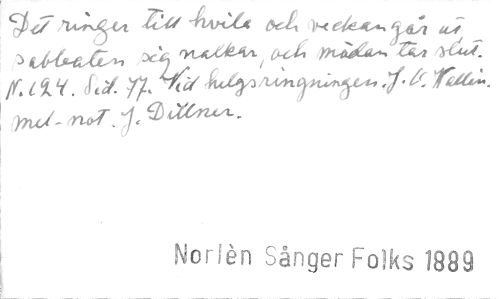 Det ringer till hvila och veckan går ut,
sabbaten sig nalkar, och mödan tar slut.
N. 124. Sid. 77. Vid helgsringningen. J. O. Wallin.
mel-not. J. Dillner.
Norlèn Sånger Folks 1889